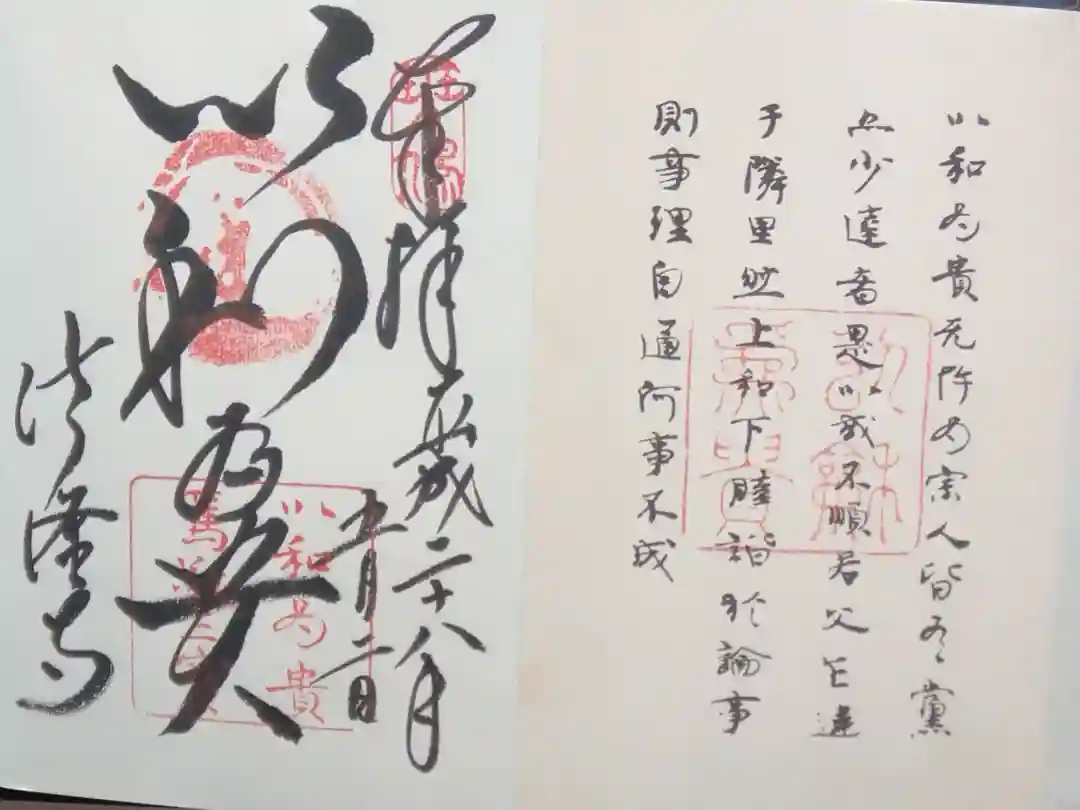 以和為貴无忤為宗人皆有黨
亦少達者是以或不順君父乍違
于隣里然上和下睦諧於論事
則事理自通何事不成
奉拝 平成二十八年
五月二日
以和為貴
法隆寺
以和為貴